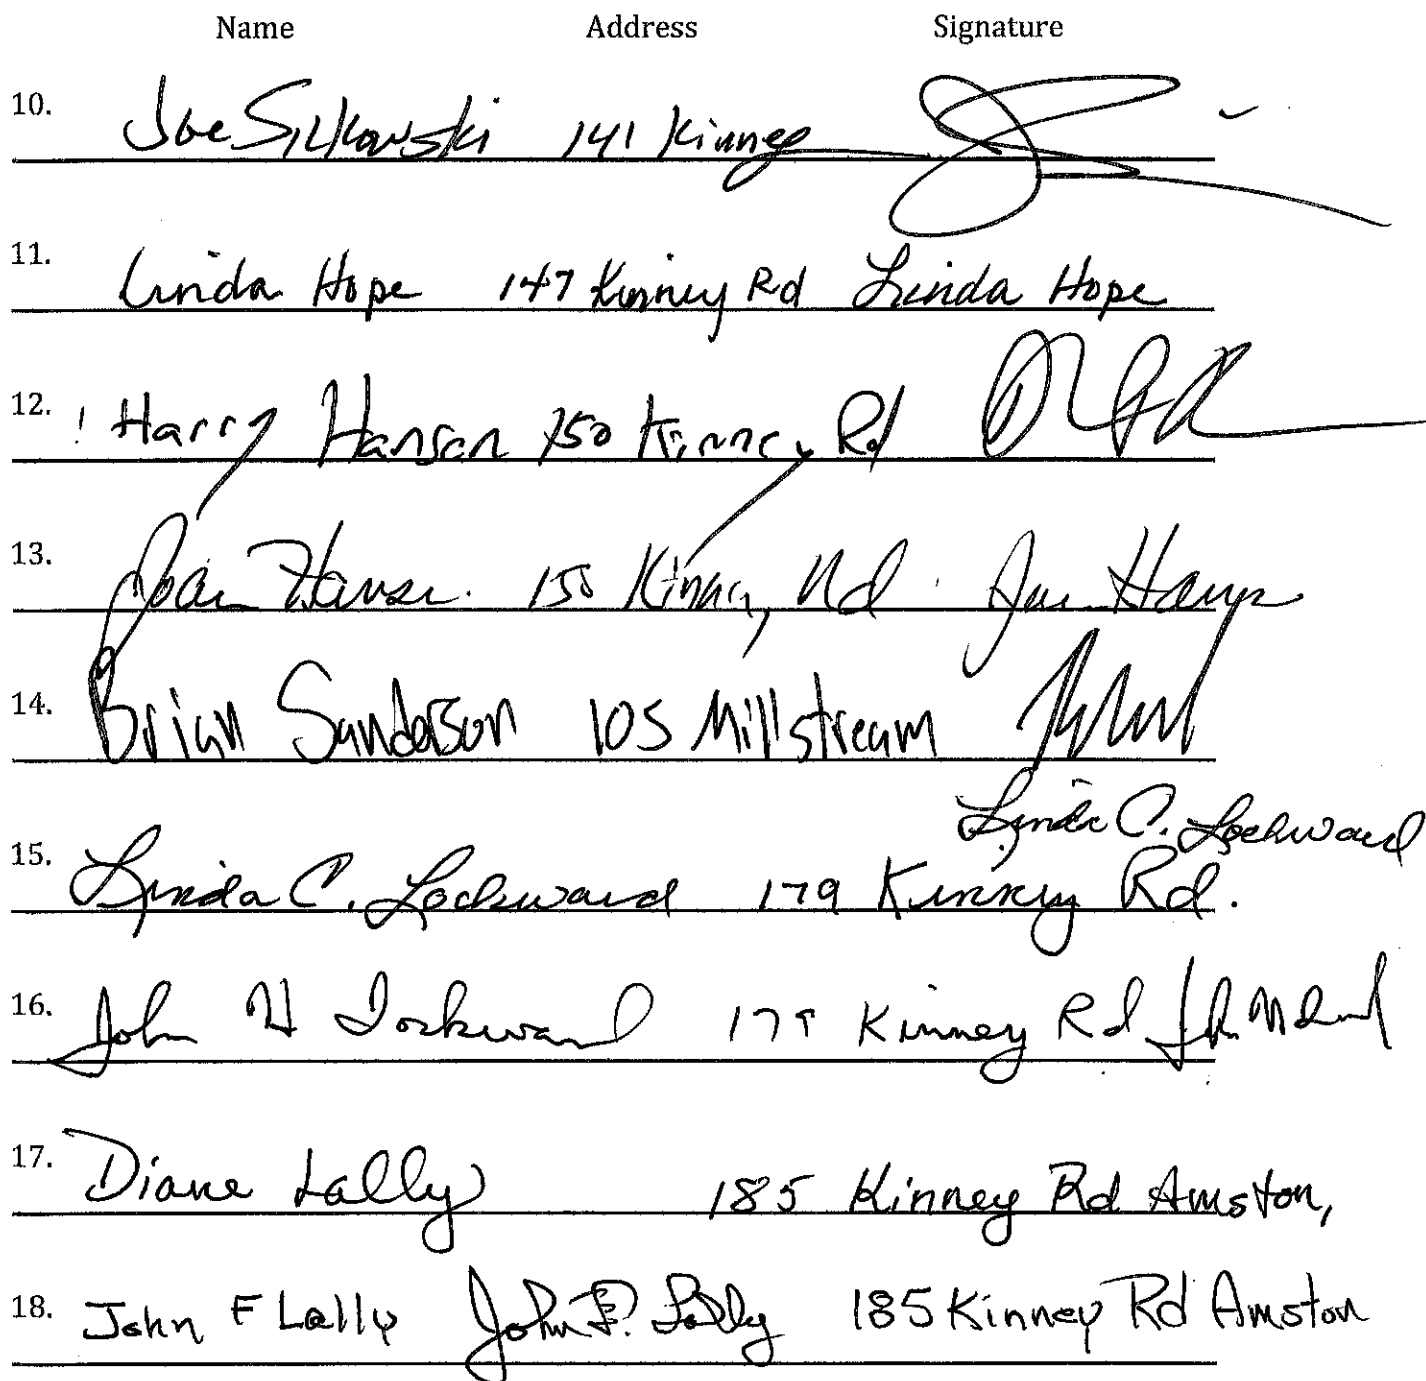 Name Address Signature
10. Joe Silkowski 141 Kinney
11. Linda Hope 147 Kinney Rd Linda Hope
12. Harry Hansen 150 Kinney Rd
13. Joan Hansen 150 Kinney Rd Joan Hansen
14. Brian Sanderson 105 Millstream
Linda C. Lockward
15. Linda C. Lockward 179 Kinney Rd.
16. John H Lockward 179 Kinney Rd
17. Diane Lally 185 Kinney Rd Amston,
18. John F Lally John F. Lally 185 Kinney Rd Amston